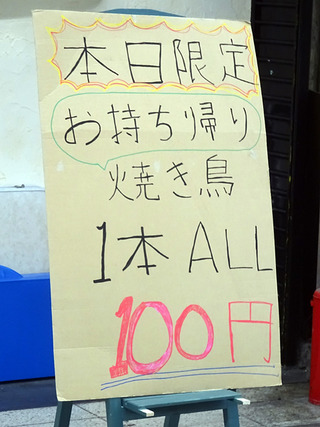 本日限定
お持ち帰り
焼き鳥
1本 ALL
100円